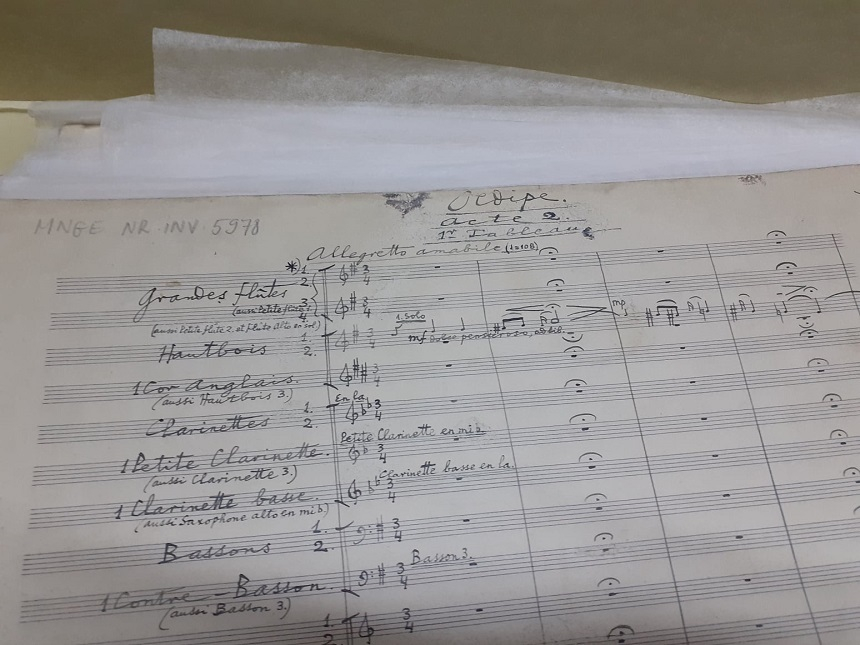 Oedipe.
acte 2.
1r Tableau
MNGE NR. INV. 5978
Allegretto amabile
*) 1.
2.
Grandes flûtes
3.
(aussi Petite flûte 1.
4.
(aussi Petite flûte 2. et Flûte alto en sol)
1. Solo
mf
mp
Hautbois
1.
2.
1 Cor Anglais.
(aussi Hautbois 3.)
En la
Clarinettes
1.
2.
Petite Clarinette en mi b.
1 Petite Clarinette.
(aussi Clarinette 3.)
Clarinette basse en la.
1 Clarinette basse.
(aussi Saxophone alto en mi b)
Bassons
1.
2.
Basson 3.
1 Contre-Basson.
(aussi Basson 3.)
1.
2.